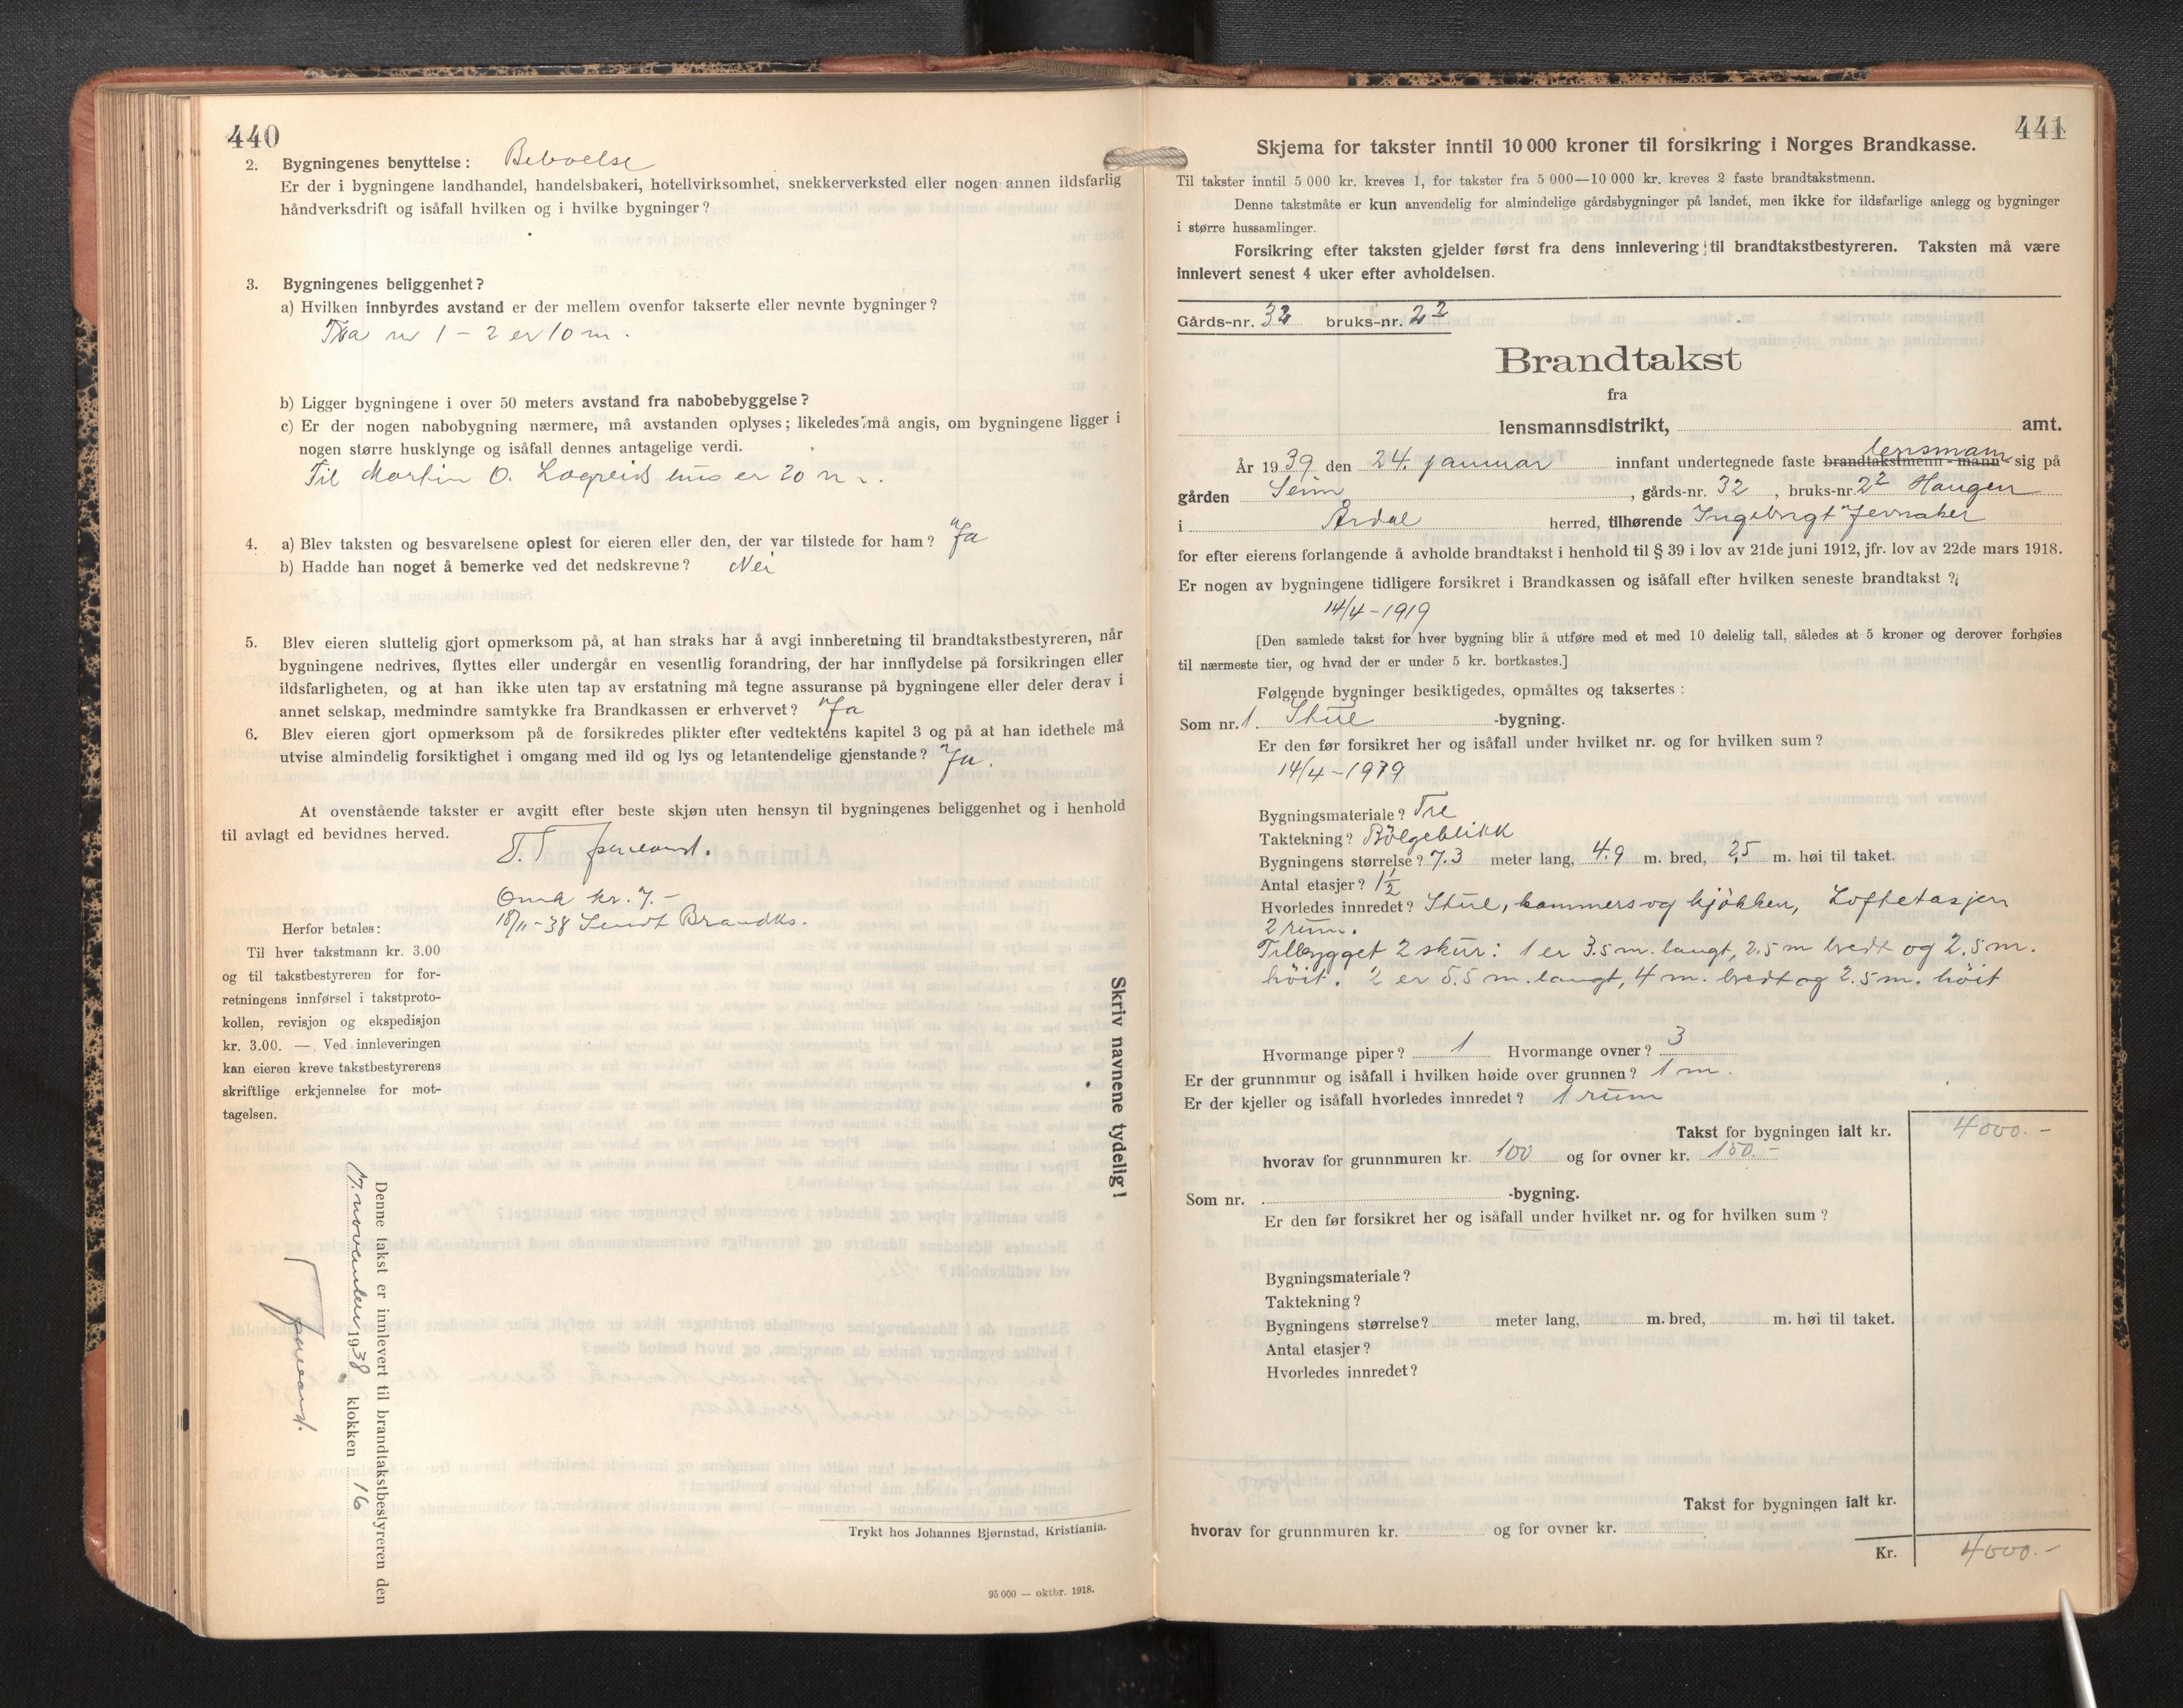 440
2. Bygningenes benyttelse: Beboelse
Er der i bygningene landhandel, handelsbakeri, hotellvirksomhet, snekkerverksted eller nogen annen ildsfarlig
håndverksdrift og isåfall hvilken og i hvilke bygninger?
3. Bygningenes beliggenhet?
a) Hvilken innbyrdes avstand er der mellem ovenfor takserte eller nevnte bygninger?
Fra nr 1 - 2 er 10 m.
b) Ligger bygningene i over 50 meters avstand fra nabobebyggelse?
c) Er der nogen nabobygning nærmere, må avstanden oplyses; likeledes må angis, om bygningene ligger i
nogen større husklynge og isåfall dennes antagelige verdi.
Til Martin O. Lægreids hus er 20 m.
4. a) Blev taksten og besvarelsene oplest for eieren eller den, der var tilstede for ham? Ja
b) Hadde han noget å bemerke ved det nedskrevne? Nei
5. Blev eieren sluttelig gjort opmerksom på, at han straks har å avgi innberetning til brandtakstbestyreren, når
bygningene nedrives, flyttes eller undergår en vesentlig forandring, der har innflydelse på forsikringen eller
ildsfarligheten, og at han ikke uten tap av erstatning må tegne assuranse på bygningene eller deler derav i
annet selskap, medmindre samtykke fra Brandkassen er erhvervet? Ja
6. Blev eieren gjort opmerksom på de forsikredes plikter efter vedtektens kapitel 3 og på at han idethele må
utvise almindelig forsiktighet i omgang med ild og lys og letantendelige gjenstande? Ja.
At ovenstående takster er avgitt efter beste skjøn uten hensyn til bygningenes beliggenhet og i henhold
til avlagt ed bevidnes herved.
Omk kr. 7.-
18/11-38 Sendt Brandks.
Herfor betales:
Til hver takstmann kr. 3.00
og til takstbestyreren for for-
retningens innførsel i takstproto-
kollen, revisjon og ekspedisjon
kr. 3.00. — Ved innleveringen
kan eieren kreve takstbestyrerens
skriftlige erkjennelse for mot-
tagelsen.
Skriv navnene tydelig!
Denne takst er innlevert til brandtakstbestyreren den
17. november 1938 klokken 16
Trykt hos Johannes Bjørnstad, Kristiania.
95 000 — oktbr. 1918.
441
Skjema for takster inntil 10 000 kroner til forsikring i Norges Brandkasse.
Til takster inntil 5 000 kr. kreves 1, for takster fra 5 000—10 000 kr. kreves 2 faste brandtakstmenn.
Denne takstmåte er kun anvendelig for almindelige gårdsbygninger på landet, men ikke for ildsfarlige anlegg og bygninger
i større hussamlinger.
Forsikring efter taksten gjelder først fra dens innlevering til brandtakstbestyreren. Taksten må være
innlevert senest 4 uker efter avholdelsen.
Gårds-nr. 32 bruks-nr. 22
Brandtakst
fra
lensmannsdistrikt, amt.
lensmann
År 1939 den 24. januar innfant undertegnede faste brandtakstmenn - mann - sig på
gården Seim, gårds-nr. 32, bruks-nr. 22 Haugen
i Årdal herred, tilhørende Ingeborgt Jevnaker
for efter eierens forlangende å avholde brandtakst i henhold til § 39 i lov av 21de juni 1912, jfr. lov av 22de mars 1918.
Er nogen av bygningene tidligere forsikret i Brandkassen og isåfall efter hvilken seneste brandtakst?
14/4-1919
[Den samlede takst for hver bygning blir å utføre med et med 10 delelig tall, således at 5 kroner og derover forhøies
til nærmeste tier, og hvad der er under 5 kr. bortkastes.]
Følgende bygninger besiktigedes, opmåltes og taksertes:
Som nr. 1. Stue -bygning.
Er den før forsikret her og isåfall under hvilket nr. og for hvilken sum?
14/4-1919
Bygningsmateriale? Tre
Taktekning? Bölgeblikk
Bygningens størrelse? 7.3 meter lang, 4.9 m. bred, 2,5 m. høi til taket.
Antal etasjer? 1½
Hvorledes innredet? Stue, kammers og kjökken, Loftetasjen
2 rum.
Tilbygget 2 skur: 1 er 3.5 m. langt, 2.5 m bredt og 2.5 m.
höit. 2 er 5.5 m. langt, 4 m. bredt og 2.5 m. höit
Hvormange piper? 1 Hvormange ovner? 3
Er der grunnmur og isåfall i hvilken høide over grunnen? 1 m.
Er der kjeller og isåfall hvorledes innredet? 1 rum
Takst for bygningen ialt kr. 4000.-
hvorav for grunnmuren kr. 100 og for ovner kr. 150.-
Som nr. -bygning.
Er den før forsikret her og isåfall under hvilket nr. og for hvilken sum?
Bygningsmateriale?
Taktekning?
Bygningens størrelse? meter lang, m. bred, m. høi til taket.
Antal etasjer?
Hvorledes innredet?
Takst for bygningen ialt kr.
hvorav for grunnmuren kr. og for ovner kr.
Kr. 4000.-